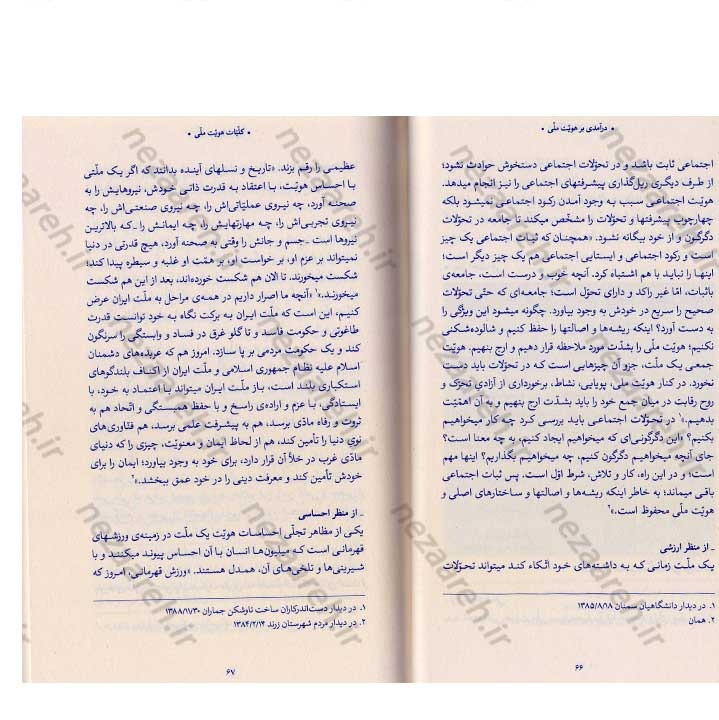 • درآمدی بر هویّت ملّی •
اجتماعی ثابت باشد و در تحوّلات اجتماعی دستخوش حوادث نشود؛
از طرف دیگری ریل‌گذاری پیشرفتهای اجتماعی را نیز انجام میدهد.
هویّت اجتماعی سبب به وجود آمدن رکود اجتماعی نمیشود بلکه
چهارچوب پیشرفتها و تحوّلات را مشخّص میکند تا جامعه در تحوّلات
دگرگون و از خود بیگانه نشود. «همچنان که ثبات اجتماعی یک چیز
است و رکود اجتماعی و ایستایی اجتماعی هم یک چیز دیگر است؛
اینها را نباید با هم اشتباه کرد. آنچه خوب و درست است، جامعه‌ی
باثبات، امّا غیر راکد و دارای تحوّل است؛ جامعه‌ای که حتّی تحوّلات
صحیح را سریع در خودش به وجود بیاورد. چگونه میشود این ویژگی را
به دست آورد؟ اینکه ریشه‌ها و اصالتها را حفظ کنیم و شالوده‌شکنی
نکنیم؛ هویّت ملّی را بشدّت مورد ملاحظه قرار دهیم و ارج بنهیم. هویّت
جمعی یک ملّت، جزو آن چیزهایی است که در تحوّلات باید دست
نخورد. در کنار هویّت ملّی، پویایی، نشاط، برخورداری از آزادی تحرّک و
روح رقابت در میان جمع خود را باید بشدّت ارج بنهیم و به آن اهمّیّت
بدهیم.»۱ در تحوّلات اجتماعی باید بررسی کرد چه کار میخواهیم
بکنیم؟ «این دگرگونی‌ای که میخواهیم ایجاد کنیم، به چه معنا است؟
جای آنچه میخواهیم دگرگون کنیم، چه میخواهیم بگذاریم؟ اینها مهم
است؛ و در این راه، کار و تلاش، شرط اوّل است. پس ثبات اجتماعی
باقی میماند؛ به خاطر اینکه ریشه‌ها و اصالتها و ساختارهای اصلی و
هویّت ملّی محفوظ است.»۲
ـ از منظر ارزشی
یک ملّت زمانی که به داشته‌های خود اتّکاء کند میتواند تحوّلات
۱. در دیدار دانشگاهیان سمنان ۱۳۸۵/۸/۱۸
۲. همان
۶۶
• کلّیّات هویّت ملّی •
عظیمی را رقم بزند. «تاریخ و نسلهای آینده بدانند که اگر یک ملّتی
با احساس هویّت، با اعتقاد به قدرت ذاتی خودش، نیروهایش را به
صحنه آورد، چه نیروی عملیّاتی‌اش را، چه نیروی صنعتی‌اش را، چه
نیروی تجربی‌اش را، چه مهارتهایش را، چه ایمانش را ـ که بالاترین
نیروها است ـ جسم و جانش را وقتی به صحنه آورد، هیچ قدرتی در دنیا
نمیتواند بر عزم او، بر خواست او، بر همّت او غلبه و سیطره پیدا کند؛
شکست میخورند. تا الان هم شکست خورده‌اند، بعد از این هم شکست
میخورند.»۱ «آنچه ما اصرار داریم در همه‌ی مراحل به ملّت ایران عرض
کنیم، این است که ملّت ایران به برکت نگاه به خود توانست قدرت
طاغوتی و حکومت فاسد و تا گلو غرق در فساد و وابستگی را سرنگون
کند و یک حکومت مردمی بر پا سازد. امروز هم که عربده‌های دشمنان
اسلام علیه نظام جمهوری اسلامی و ملّت ایران از اکناف بلندگوهای
استکباری بلند است، باز ملّت ایران میتواند با اعتماد به خود، با
ایستادگی، با عزم و اراده‌ی راسخ و با حفظ همبستگی و اتّحاد هم به
ثروت و رفاه مادّی برسد، هم به پیشرفت علمی برسد، هم فنّاوری‌های
نوی دنیا را تأمین کند، هم از لحاظ ایمان و معنویّت، چیزی را که دنیای
مادّی غرب در خلأ آن قرار دارد، برای خود به وجود بیاورد؛ ایمان را برای
خودش تأمین کند و معرفت دینی را در خود عمق ببخشد.»۲
ـ از منظر احساسی
یکی از مظاهر تجلّی احساسات هویّت یک ملّت در زمینه‌ی ورزشهای
قهرمانی است که میلیون‌ها انسان با آن احساس پیوند میکنند و با
شیرینی‌ها و تلخی‌های آن، همدل هستند. «ورزش قهرمانی، امروز که
۱. در دیدار دست‌اندرکاران ساخت ناوشکن جماران ۱۳۸۸/۱۱/۳۰
۲. در دیدار مردم شهرستان زرند ۱۳۸۴/۲/۱۴
۶۷
nezaareh.ir